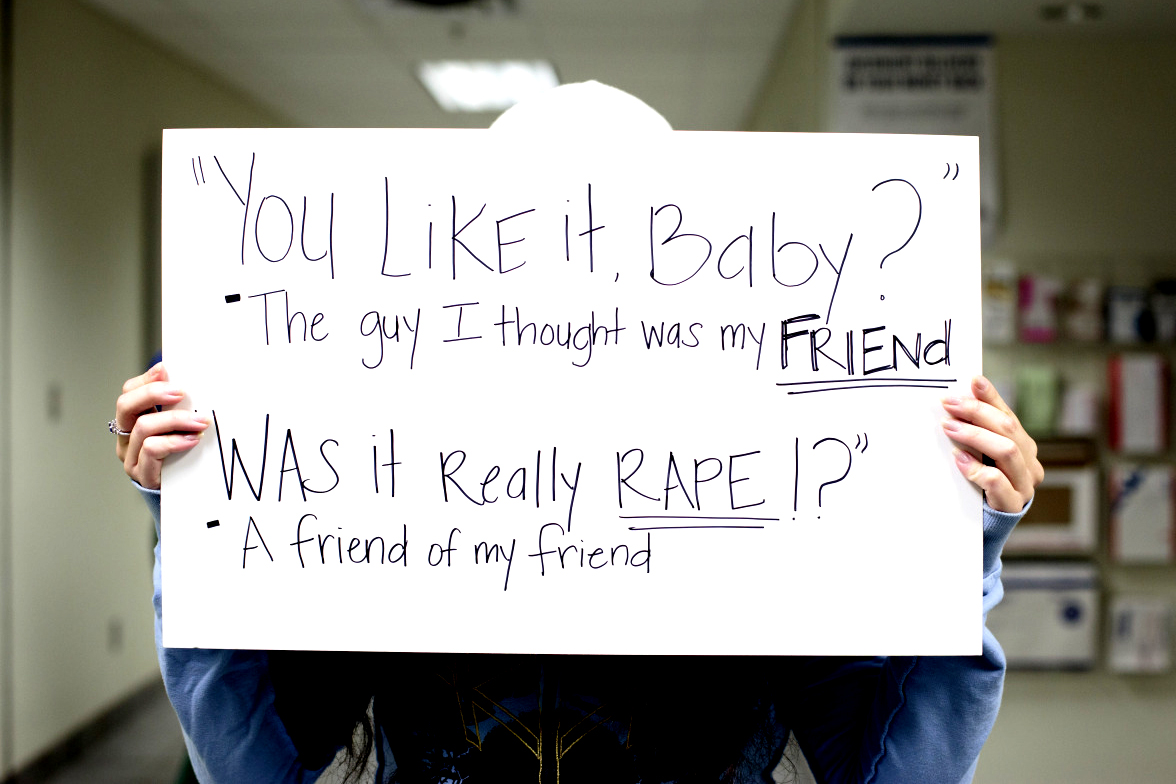 "YOU LIKE it, Baby?"
- The guy I thought was my FRIENd
"WAS it Really RAPE!?"
- A friend of my friend